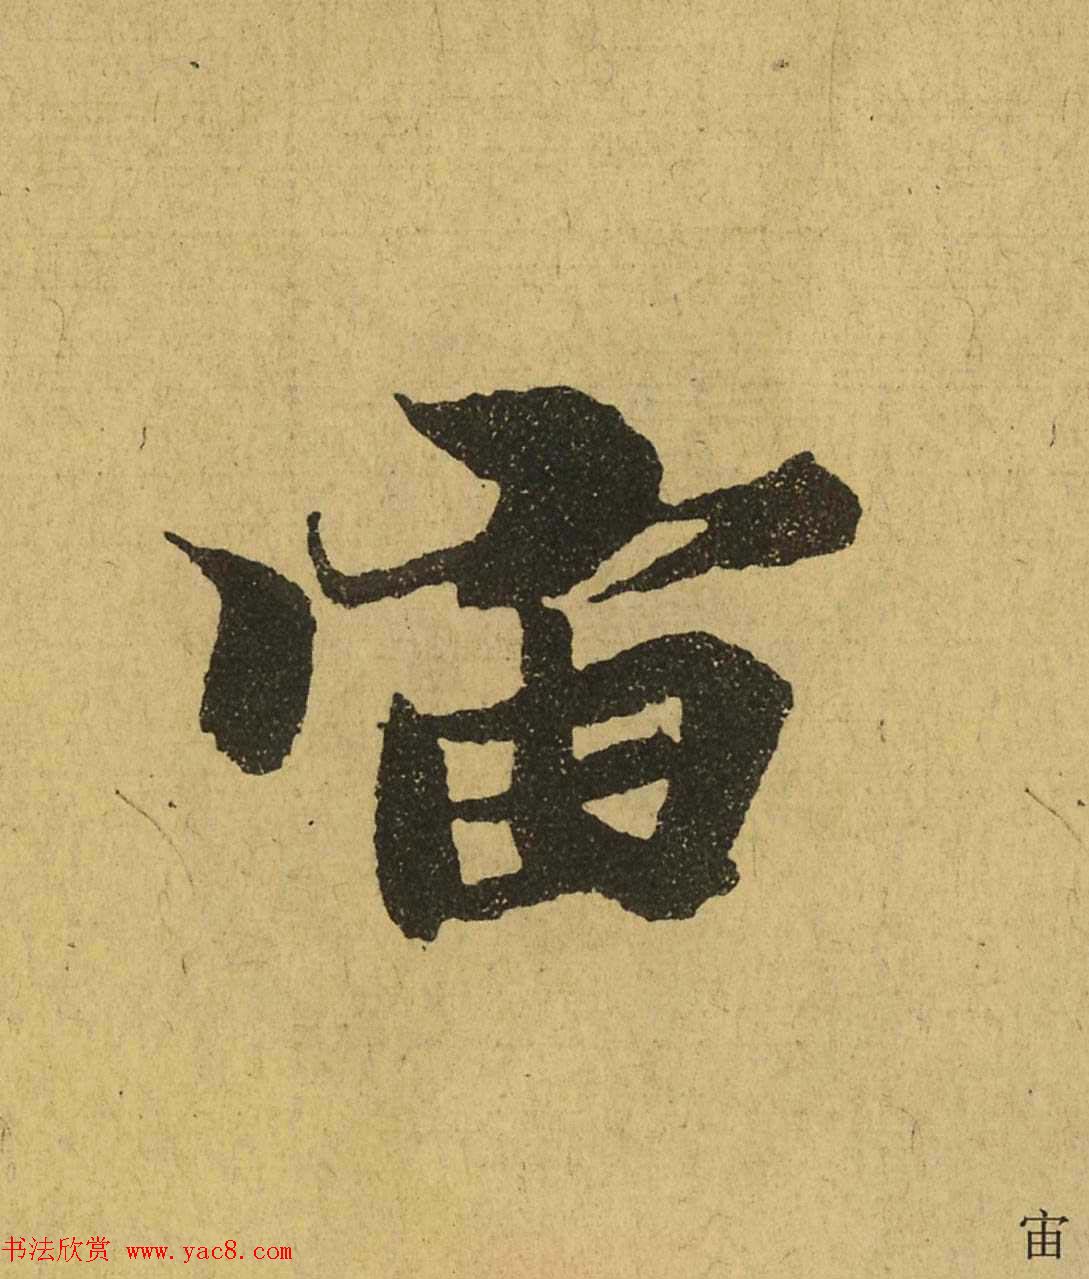 宙
书法欣赏 www.yac8.com
宙